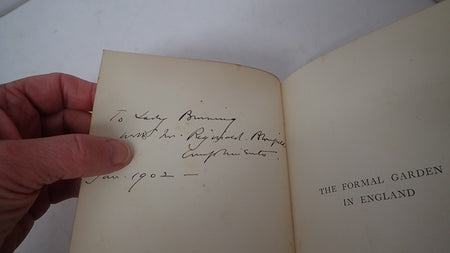 To Lady Binning
with Mr. Reginald Blomfield's
Compliments
Jan. 1902 —
THE FORMAL GARDEN
IN ENGLAND